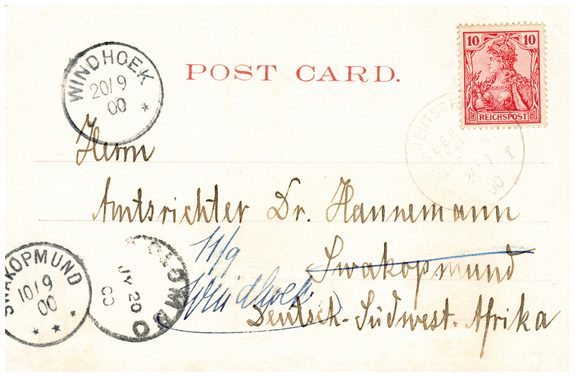 WINDHOEK
20/9
00
*
POST CARD.
10 10
REICHSPOST
DEUTSCHE
20 7
00
Herrn
Amtsrichter Dr. Hannemann
11/9
Swakopmund
Windhoek
Deutsch-Südwest-Afrika
SWAKOPMUND
10/9
00
* * *
COLOMBO
JY 20
00